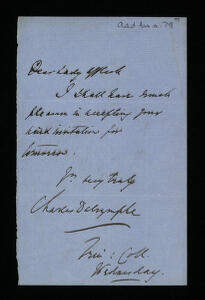 Dear Lady
I shall have much
pleasure in accepting your
kind invitation for
tomorrow.
Yrs very truly
Charles Dalrymple
Trin: Coll.
Wednesday.